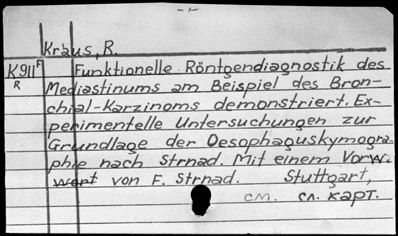 -1-
Kraus, R.
K911F Funktionelle Röntgendiagnostik des
R Mediastinums am Beispiel des Bron-
chial-Karzinoms demonstriert. Ex-
perimentelle Untersuchungen zur
Grundlage der Oesophaguskymogra-
phie nach Strnad. Mit einem Vorw.
wort von F. Strnad. Stuttgart,
см. сл. карт.